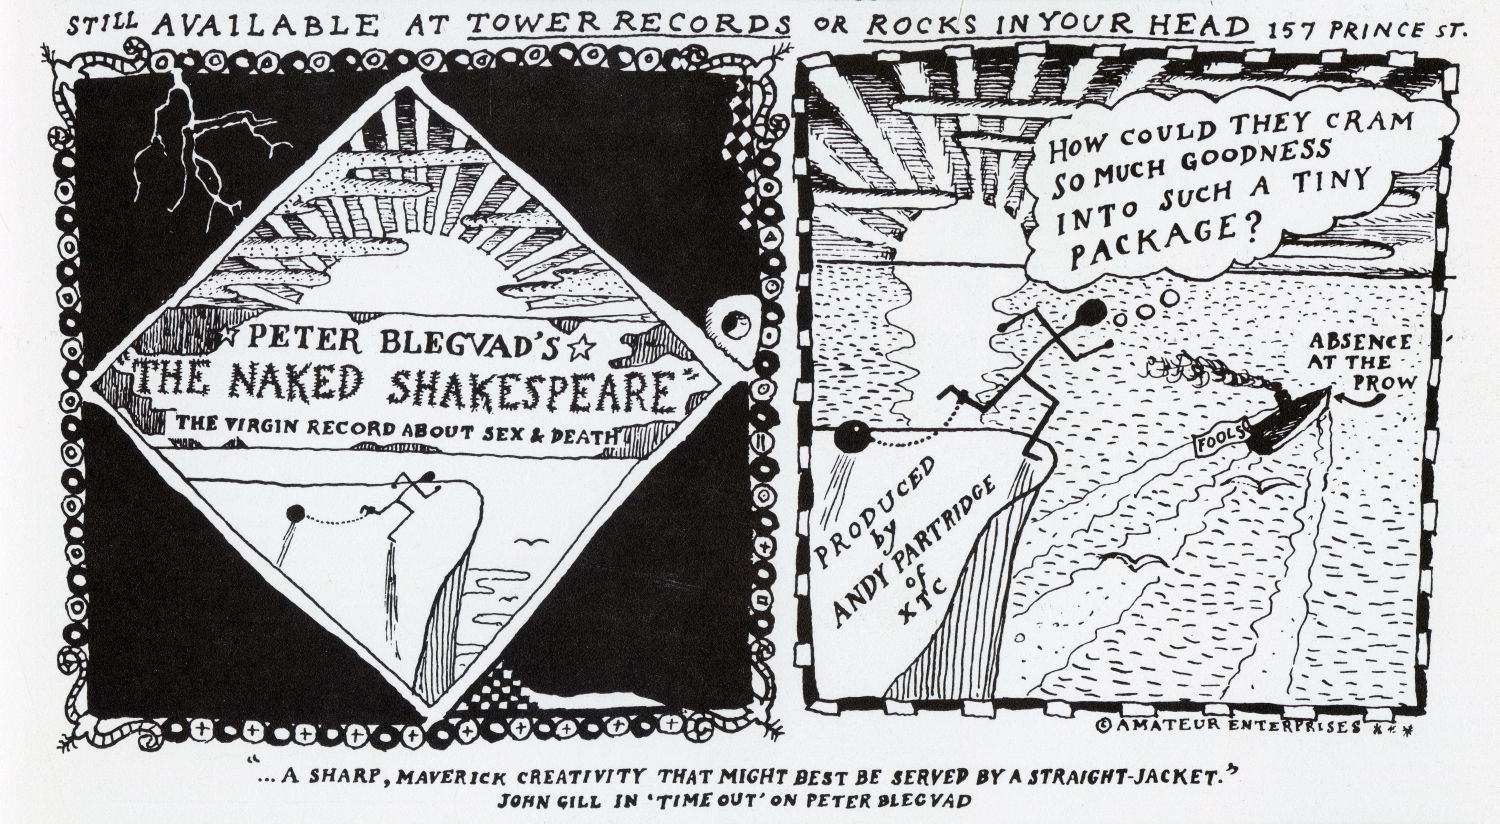 STILL AVAILABLE AT TOWER RECORDS OR ROCKS IN YOUR HEAD 157 PRINCE ST.
☆ PETER BLEGVAD'S ☆
"THE NAKED SHAKESPEARE"
THE VIRGIN RECORD ABOUT SEX & DEATH
HOW COULD THEY CRAM
SO MUCH GOODNESS
INTO SUCH A TINY
PACKAGE?
ABSENCE
AT THE
PROW
FOOLS
PRODUCED
by
ANDY PARTRIDGE
of
XTC
© AMATEUR ENTERPRISES ***
"...A SHARP, MAVERICK CREATIVITY THAT MIGHT BEST BE SERVED BY A STRAIGHT-JACKET."
JOHN GILL IN 'TIME OUT' ON PETER BLEGVAD